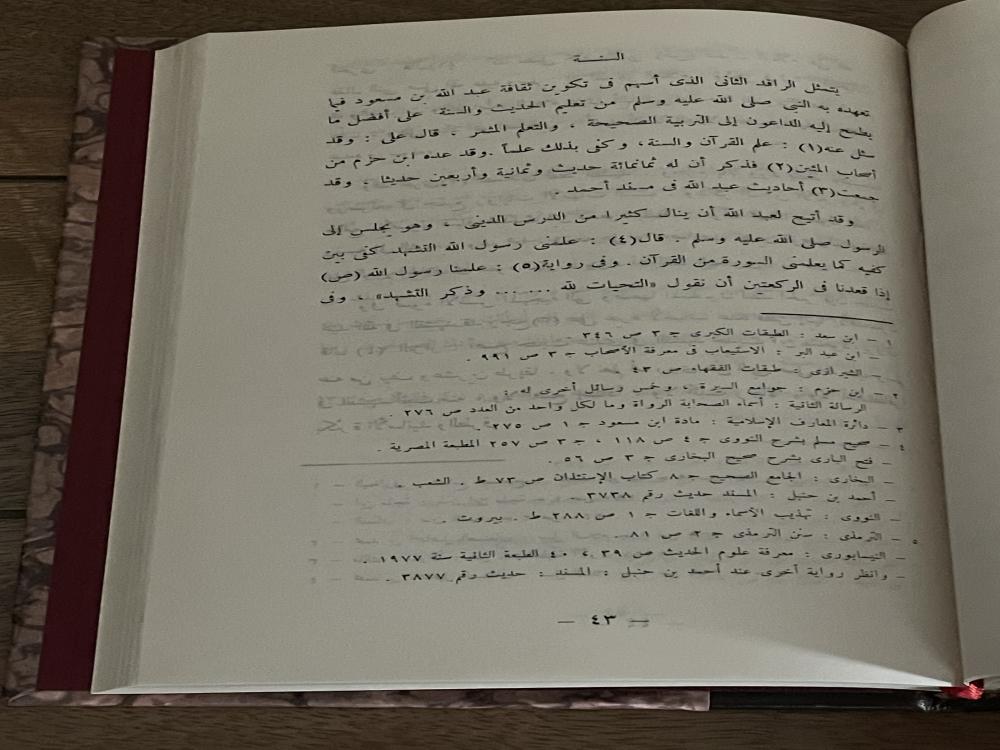 السنة
يتمثل الرافد الثانى الذى أسهم فى تكوين ثقافة عبد الله بن مسعود فيما
تعهده به النبى صلى الله عليه وسلم من تعليم الحديث والسنة على أفضل ما
يطمح إليه الداعون إلى التربية الصحيحة ، والتعلم المثمر ، قال على : وقد
سئل عنه(١) : علم القرآن والسنة، وكفى بذلك علماً .وقد عده ابن حزم من
أصحاب المئين(٢) فذكر أن له ثمانمائة حديث وثمانية وأربعين حديثا ، وقد
جمعت(٣) أحاديث عبد الله فى مسند أحمد .
وقد أتيح لعبد الله أن ينال كثيرا من الدرس الدينى ، وهو يجلس إلى
الرسول صلى الله عليه وسلم . قال(٤) : علمنى رسول الله التشهد كفى بين
كفيه كما يعلمنى السورة من القرآن . وفى رواية(٥) : علمنا رسول الله (ص)
إذا قعدنا فى الركعتين أن نقول «التحيات لله ... ... وذكر التشهد» ، وفى
١ – ابن سعد : الطبقات الكبرى جـ ٣ ص ٣٤٦ .
– ابن عبد البر : الاستيعاب فى معرفة الأصحاب جـ ٣ ص ٩٩١ .
– الشيرازى : طبقات الفقهاء ص ٤٣
٢ – ابن حزم : جوامع السيرة ، وخمس رسائل أخرى له :
الرسالة الثانية : أسماء الصحابة الرواة وما لكل واحد من العدد ص ٢٧٦ .
٣ – دائرة المعارف الإسلامية : مادة ابن مسعود جـ ١ ص ٢٧٥ .
٤ – صحيح مسلم بشرح النووى جـ ٤ ص ١١٨ ، جـ ٣ ص ٢٥٧ المطبعة المصرية .
– فتح البارى بشرح صحيح البخارى جـ ٣ ص ٥٦ .
– البخارى : الجامع الصحيح جـ ٨ كتاب الإستئذان ص ٧٣ ط . الشعب .
– أحمد بن حنبل : المسند حديث رقم ٣٧٣٨ .
– النووى : تهذيب الأسماء واللغات جـ ١ ص ٢٨٨ ط . بيروت .
٥ – الترمذى : سنن الترمذى جـ ٢ ص ٨١ .
– النيسابورى : معرفة علوم الحديث ص ٣٩ ، ٤٠ الطبعة الثانية سنة ١٩٧٧ .
– وانظر رواية أخرى عند أحمد بن حنبل : المسند : حديث رقم ٣٨٧٧ .
– ٤٣ –